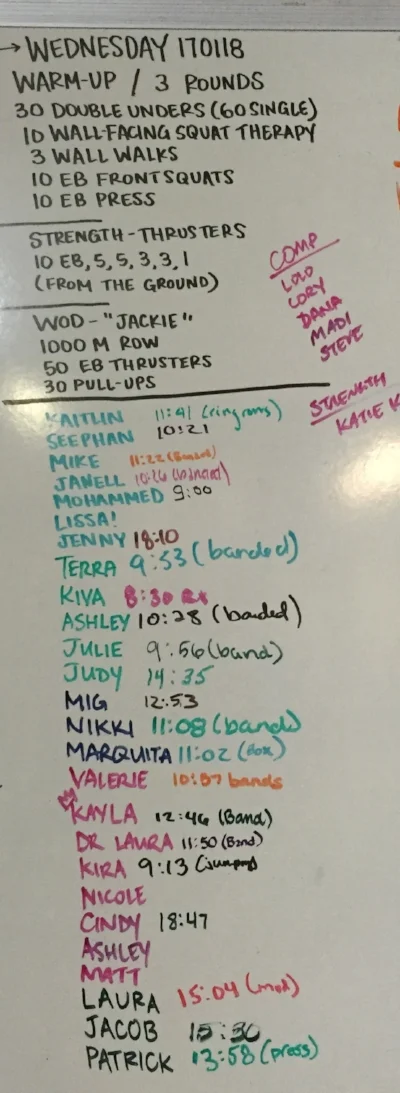 → WEDNESDAY 170118
WARM-UP / 3 ROUNDS
30 DOUBLE UNDERS (60 SINGLE)
10 WALL-FACING SQUAT THERAPY
3 WALL WALKS
10 EB FRONT SQUATS
10 EB PRESS
STRENGTH - THRUSTERS
10 EB, 5, 5, 3, 3, 1
(FROM THE GROUND)
WOD - "JACKIE"
1000 M ROW
50 EB THRUSTERS
30 PULL-UPS
COMP
LOLO
CORY
DANA
MADI
STEVE
STRENGTH
KATIE K
KAITLIN 11:41 (ring rows)
SEEPHAN 10:21
MIKE 11:22 (Band)
JANELL 10:26 (banded)
MOHAMMED 9:00
LISSA!
JENNY 18:10
TERRA 9:53 (banded)
KIVA 8:30 Rx
ASHLEY 10:28 (banded)
JULIE 9:56 (band)
JUDY 14:35
MIG 12:53
NIKKI 11:08 (band)
MARQUITA 11:02 (Box)
VALERIE 10:07 bands
KAYLA 12:46 (Band)
DR LAURA 11:50 (Band)
KIRA 9:13 (jumping)
NICOLE
CINDY 18:47
ASHLEY
MATT
LAURA 15:04 (mod)
JACOB 15:30
PATRICK 13:58 (press)